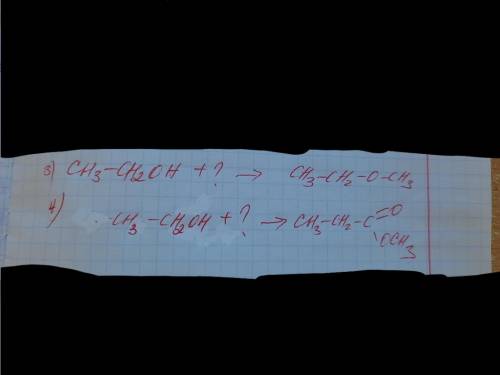 3) CH3-CH2OH + ? → CH3-CH2-O-CH3
4) CH3-CH2OH + ? → CH3-CH2-C=O
OCH3